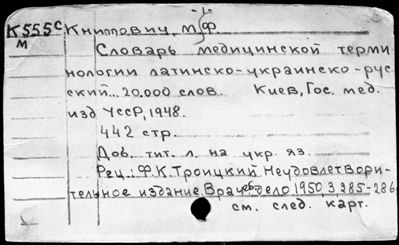 -1-
К555с Книппович, М.Ф.
М
Словарь медицинской терми
нологии латинско-украинско-рус
ский... 20.000 слов. Киев, Гос. мед.
изд УССР, 1948.
442 стр.
Доб. тит. л. на укр. яз.
Рец.: Ф.К. Троицкий Неудовлетвори-
тельное издание. Врачеб. дело 1950, 3 285-286
см. след. карт.